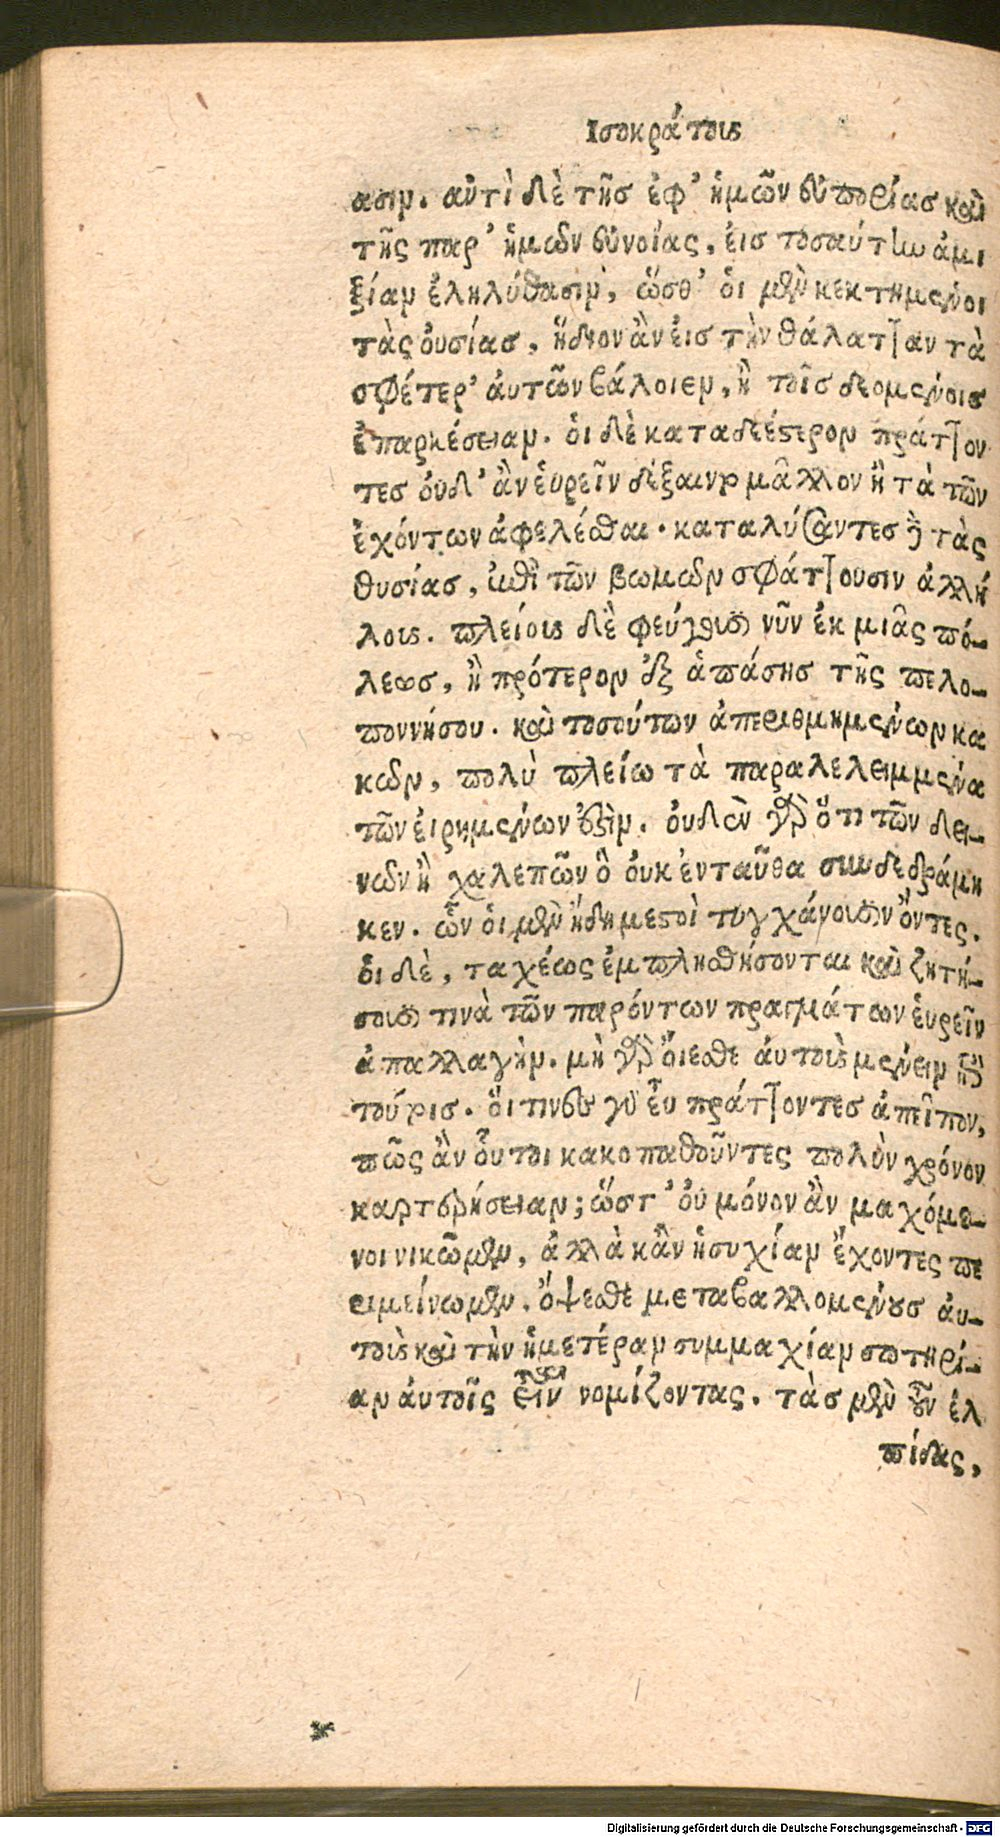 Ισοκράτους
ασιν. αὐτὶ δὲ τῆς ἐφ' ἡμῶν εὐπορίας καὶ
τῆς παρ' ἡμῶν εὐνοίας, ἐις τοσαύτην ἀμι
ξίαν ἐληλύθασιν, ὥσθ' ὁι μὲν κεκτημένοι
τὰς ὀυσίας, ἥδιον ἂν ἐις τὴν θάλατταν τὰ
σφέτερ' ἀυτῶν βάλοιεν, ἢ τοῖς δεομένοις
ἐπαρκέσειαν. ὁι δὲ καταδεέστερον πράττον
τες ὀυδ' ἂν ἑυρεῖν δέξαιντο μᾶλλον ἢ τὰ τῶν
ἐχόντων ἀφελέσθαι. καταλύσαντες δὲ τὰς
θυσίας, ἐπὶ τῶν βωμῶν σφάττουσιν ἀλλή
λους. πλείους δὲ φεύγουσι νῦν ἐκ μιᾶς πό-
λεως, ἢ πρότερον ἐξ ἁπάσης τῆς πελο-
ποννήσου. καὶ τοσούτων ἀπεριθμημένων κα
κῶν, πολὺ πλείω τὰ παραλελειμμένα
τῶν ἐιρημένων ἐστὶν. ὀυδὲν γὰρ ὅτι τῶν δει-
νῶν ἢ χαλεπῶν ὃ ὀυκ ἐνταῦθα συνδεδράμη
κεν. ὧν ὁι μὲν ἤδη μεστοὶ τυγχάνουσιν ὄντες.
ὁι δὲ, ταχέως ἐμπλησθήσονται καὶ ζητή-
σουσι τινὰ τῶν παρόντων πραγμάτων ἑυρεῖν
ἀπαλλαγὴν. μὴ γὰρ ὄιεσθε ἀυτοὺς μένειν ἐπὶ
τούτοις. ὅιτινες γὰρ ἐυ πράττοντες ἀπεῖπον,
πῶς ἂν οὗτοι κακοπαθοῦντες πολὺν χρόνον
καρτερήσειαν; ὥστ' ὀυ μόνον ἂν μαχόμε-
νοι νικῶμεν, ἀλλὰ κἂν ἡσυχίαν ἔχοντες πε
ριμείνωμεν, ὄψεσθε μεταβαλλομένους ἀυ-
τοὺς καὶ τὴν ἡμετέραν συμμαχίαν σωτηρί-
αν ἀυτοῖς εἶναι νομίζοντας. τὰς μὲν οὖν ἐλ
πίδας,
Digitalisierung gefördert durch die Deutsche Forschungsgemeinschaft - DFG